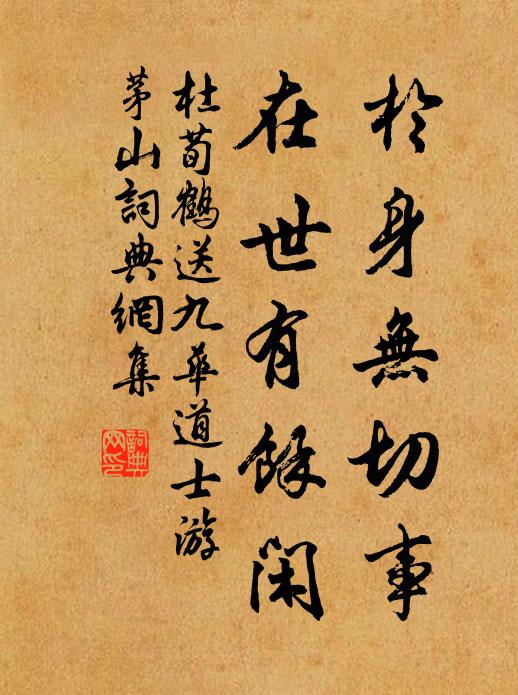 於身無切事
在世有餘閑
杜荀鶴送九華道士游
茅山詞典網集
詞典網印